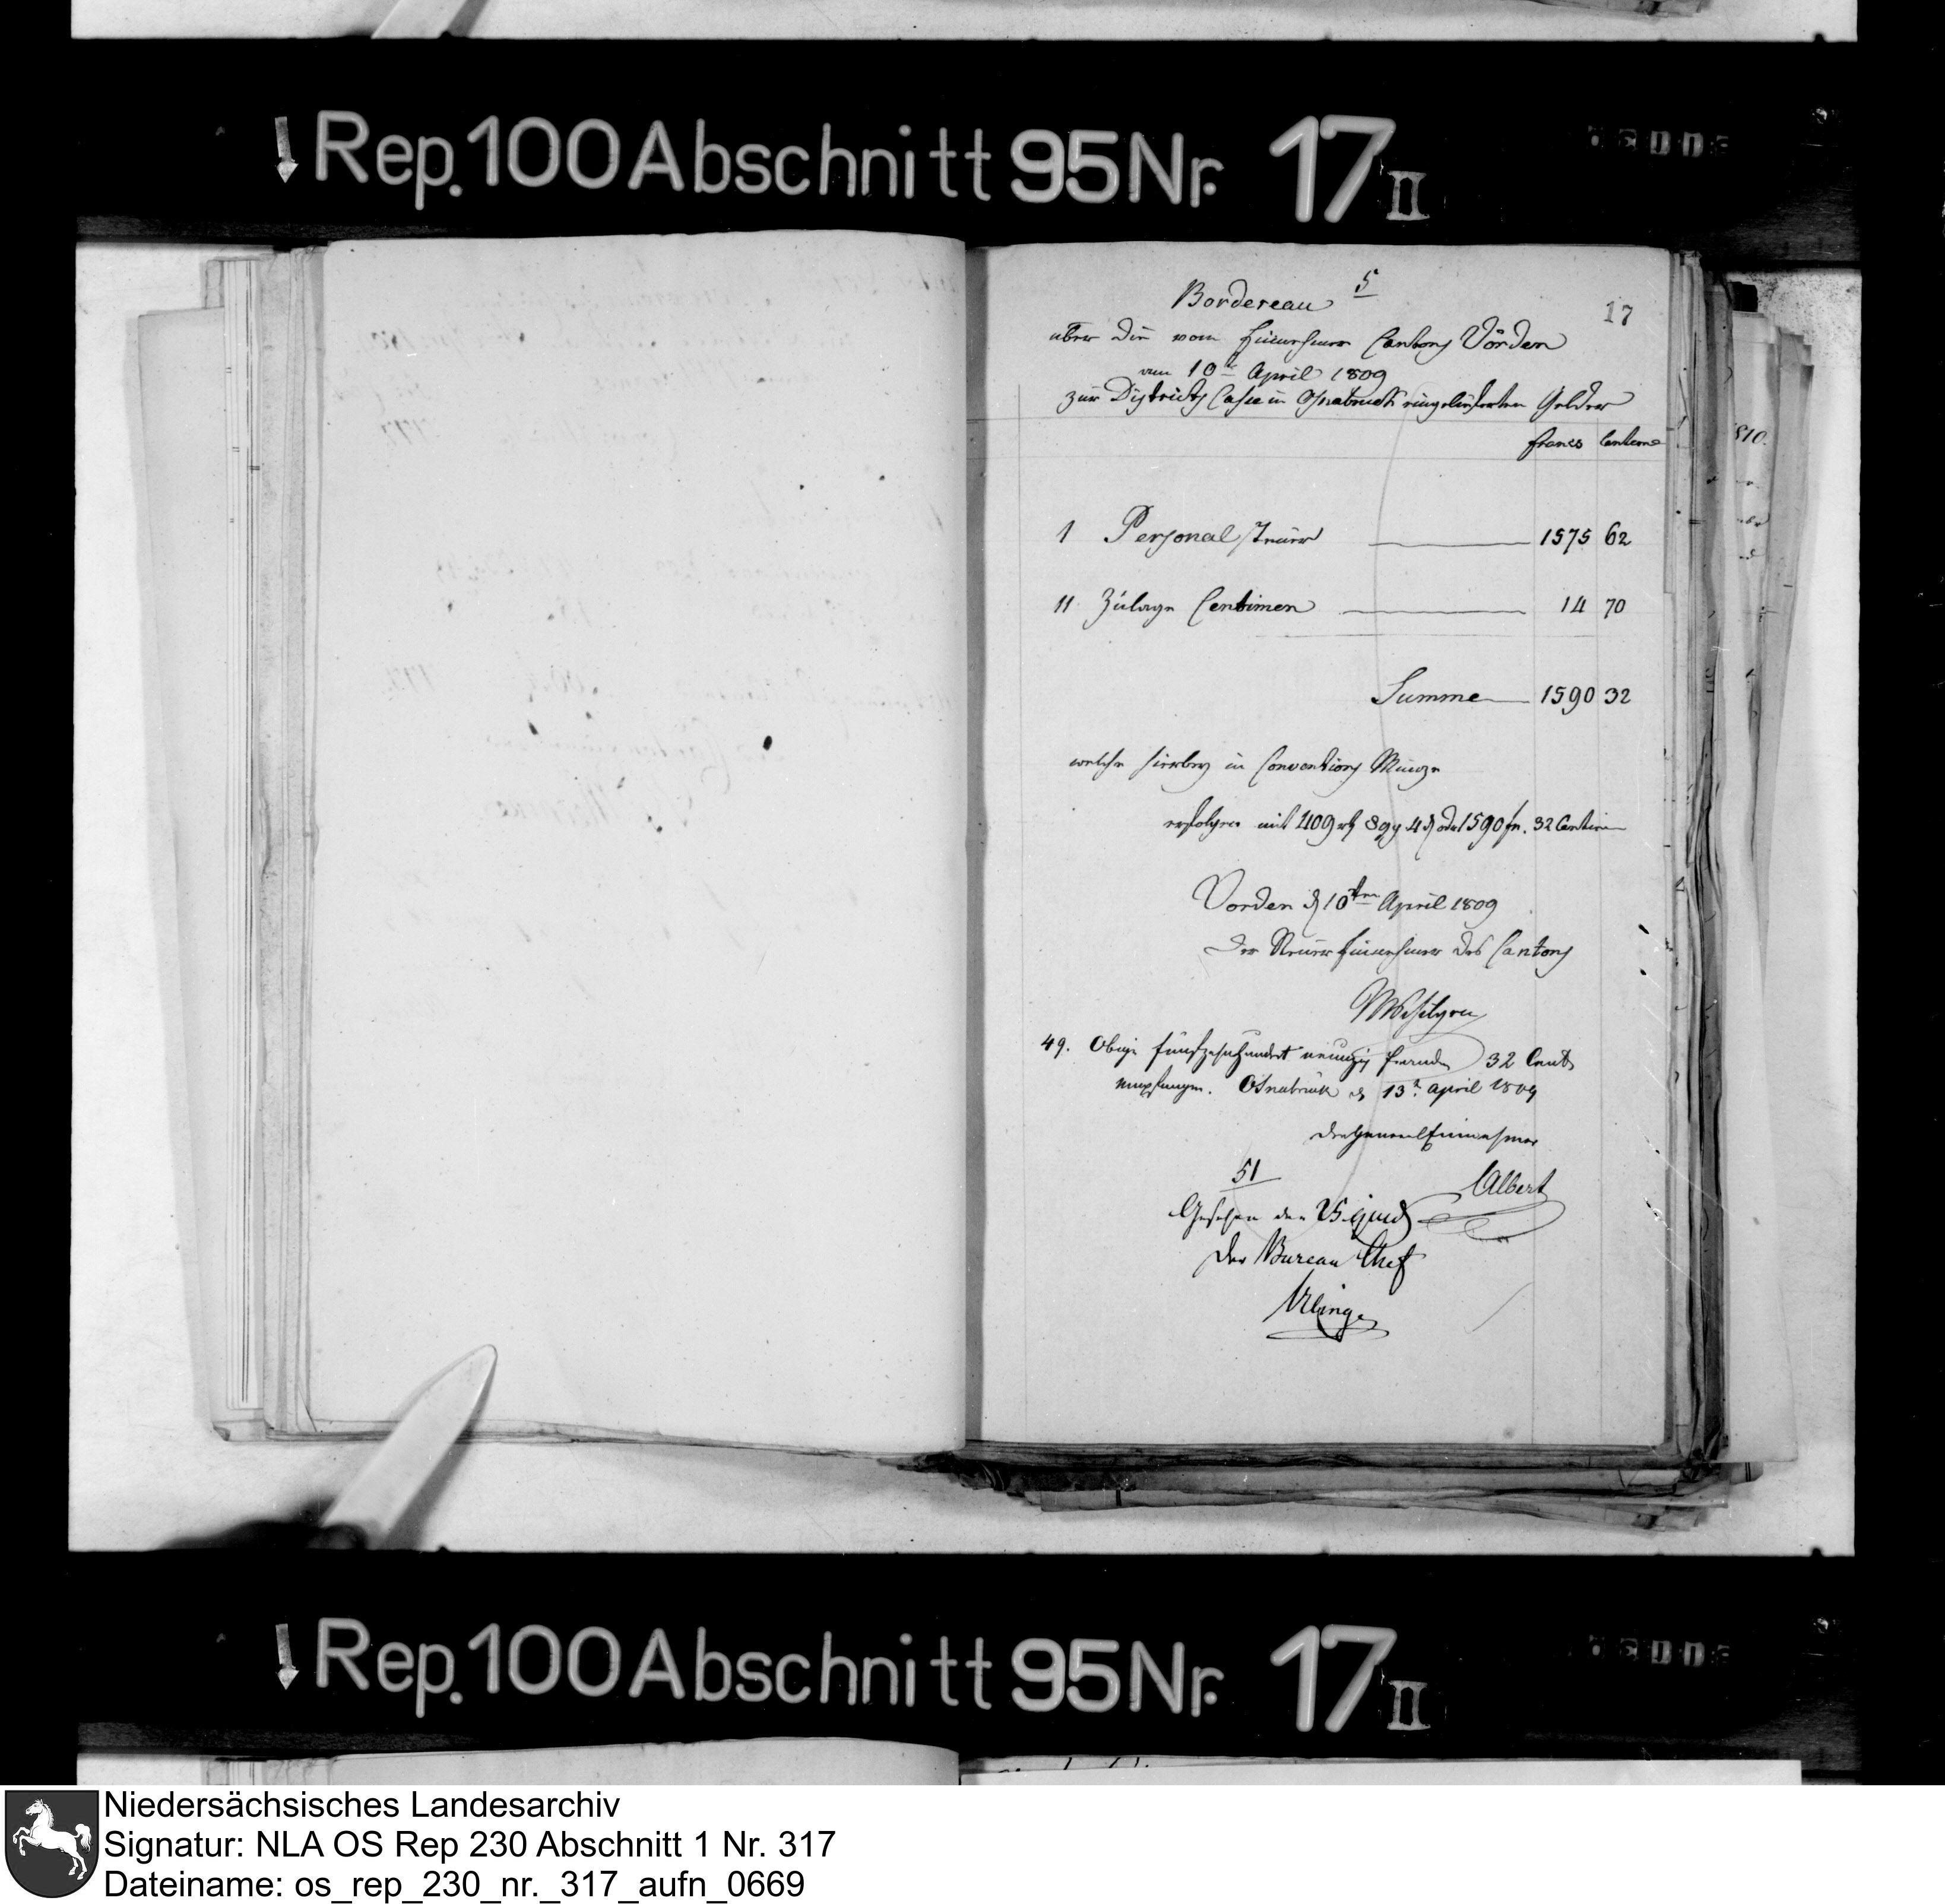 Rep. 100 Abschnitt 95 Nr. 17 II
5
Bordereau
17
über die vom Einnehmer Cantons Vörden
am 10t April 1809
zur Districts Casse in Osnabruck eingelieferten Gelder
francs Centime
1 Personal steuer 1575 62
11 Zulage Centimen 14 70
Summe 1590 32
welche hierbey in Conventions Münze
erfolgen mit 409 rth 8 gg 4 d oder 1590 fr. 32 Centim
Vörden d 10ten April 1809
Der Steuer Einnehmer des Cantons
49. Obige fünfzehnhundert neunzig franken 32 Cent
empfangen. Osnabrück d 13t April 1809
der General Einnehmer
Albert
51
Gesehen den 25. ejusd
Der Bureau Chef
810.
Rep. 100 Abschnitt 95 Nr. 17 II
Niedersächsisches Landesarchiv
Signatur: NLA OS Rep 230 Abschnitt 1 Nr. 317
Dateiname: os_rep_230_nr._317_aufn_0669